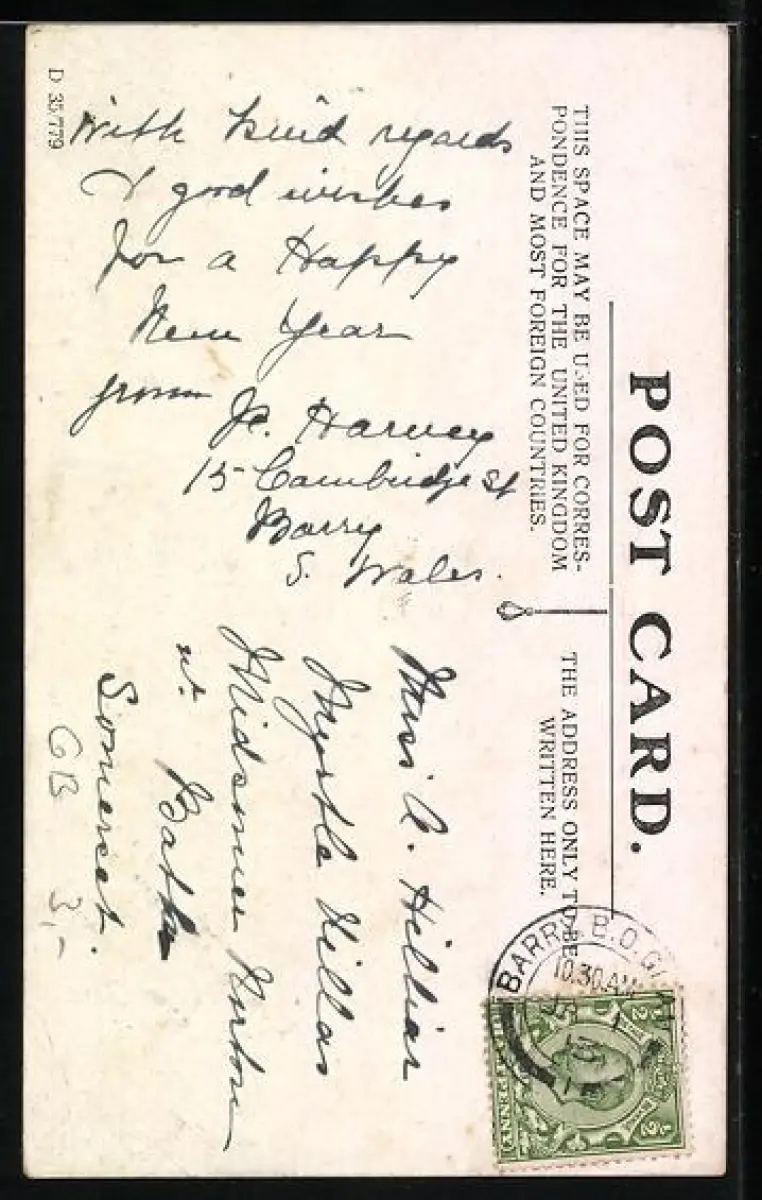 POST CARD.
THIS SPACE MAY BE USED FOR CORRES-
PONDENCE FOR THE UNITED KINGDOM
AND MOST FOREIGN COUNTRIES.
THE ADDRESS ONLY TO BE
WRITTEN HERE.
D 35779
With kind regards
& good wishes
for a Happy
New Year
from
Harvey
15 Cambridge St
Barry
S. Wales.
Miss A. Hilliar
Myrtle Villas
Midsomer Norton
nr Bath
Somerset.
GB 3,-
BARRY B.O. GL
10.30 AM